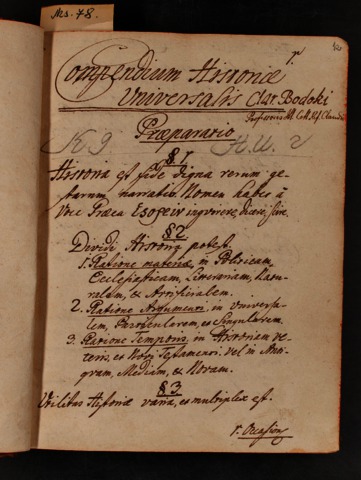 Ms. 78.
12
Compendium Historiæ
Universalis Clar. Bodoki
Professoris
Præparatio
K 9 H.U. 2
§ 1
Historia est fide digna rerum ge-
starum narratio. Nomen habet à
Voce Græca
§ 2
Dividi Historia potest
1. Ratione materiæ, in Politicam,
Ecclesiasticam, Literariam, Natu-
ralem, et Artificialem.
2. Ratione Argumenti, in Universa-
lem, Particularem, et Singularem.
3. Ratione Temporis, in Historiam ve-
teris, et Novi Testamenti. vel in Anti-
quam, Mediam, et Novam.
§ 3
Utilitas Historiæ varia, et multiplex est.